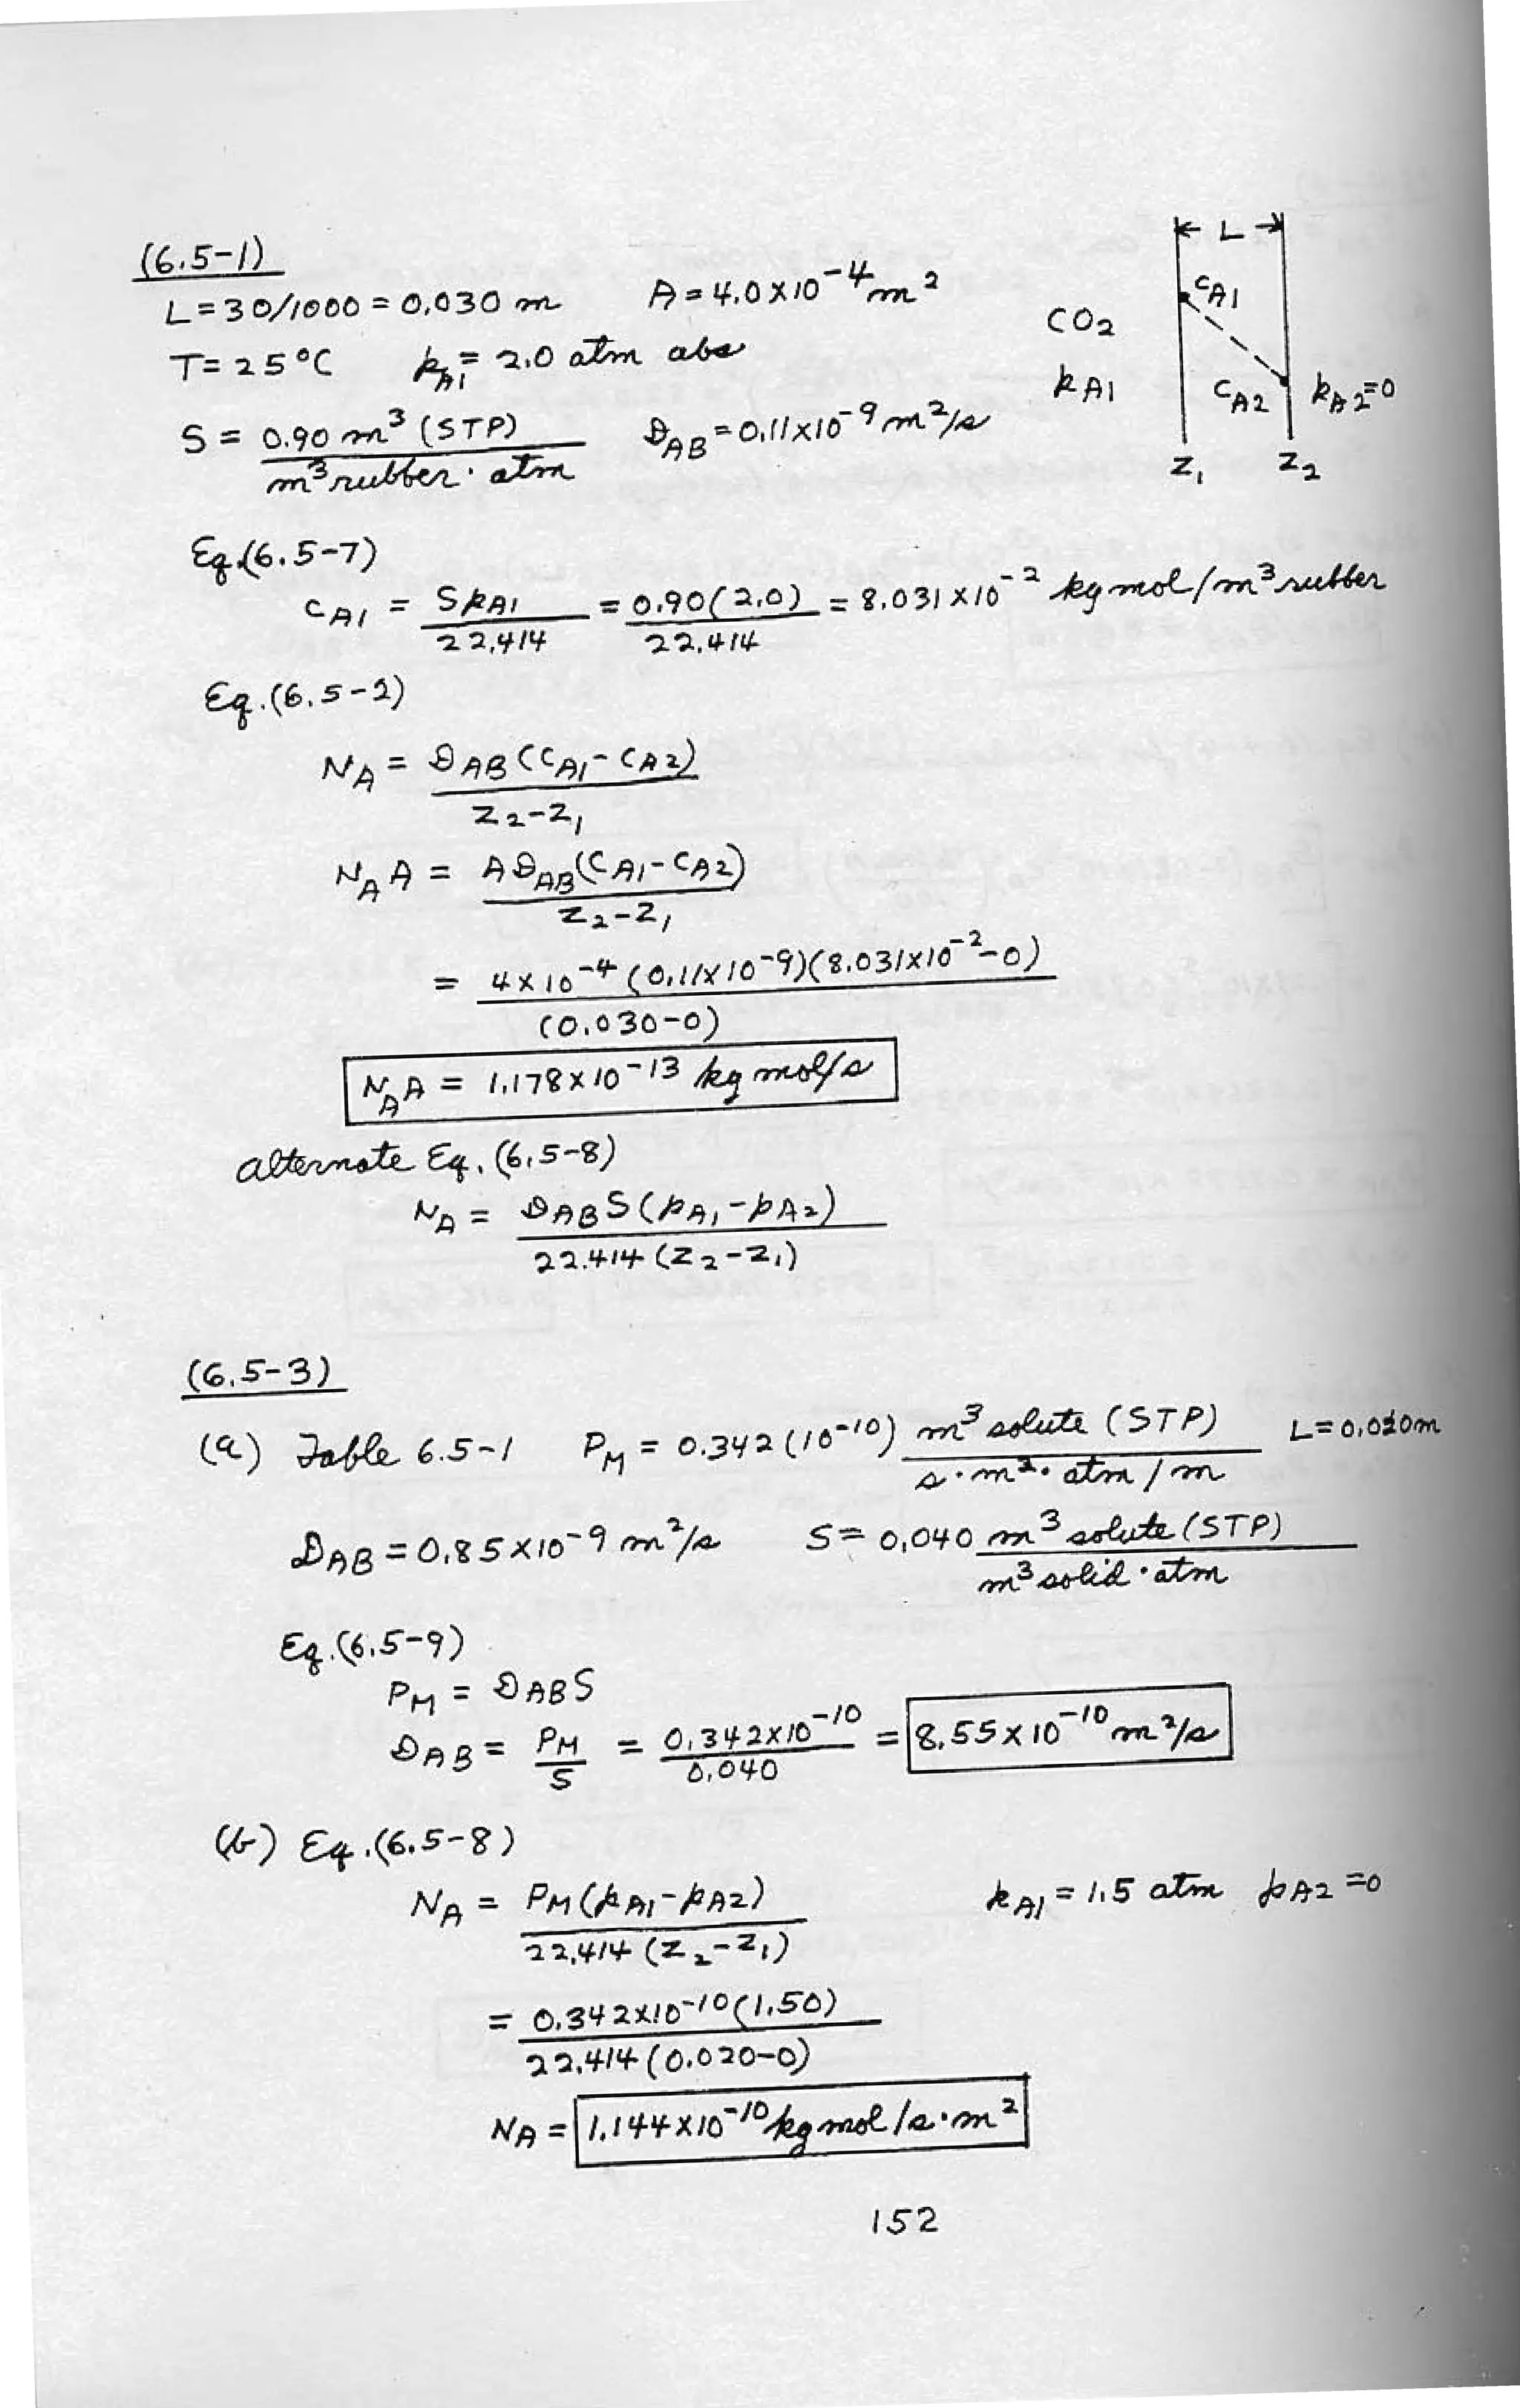 (6.5-1)
L = 30/1000 = 0.030 m   A = 4.0 × 10⁻⁴ m²
T = 25 °C   p_A1 = 2.0 atm abs
S = 0.90 m³ (STP) / m³ rubber · atm   D_AB = 0.11 × 10⁻⁹ m²/s
← L →
c_A1
CO₂
p_A1   c_A2   p_A2 = 0
z₁   z₂
Eq. (6.5-7)
c_A1 = S p_A1 / 22.414 = 0.90(2.0) / 22.414 = 8.031 × 10⁻² kg mol/m³ rubber
Eq. (6.5-2)
N_A = D_AB (c_A1 - c_A2) / z₂ - z₁
N_A A = A D_AB (c_A1 - c_A2) / z₂ - z₁
= 4 × 10⁻⁴ (0.11 × 10⁻⁹)(8.031 × 10⁻² - 0) / (0.030 - 0)
N_A A = 1.178 × 10⁻¹³ kg mol/s
alternate Eq. (6.5-8)
N_A = D_AB S (p_A1 - p_A2) / 22.414 (z₂ - z₁)
(6.5-3)
(a) Table 6.5-1   P_M = 0.342 (10⁻¹⁰) m³ solute (STP) / s · m² · atm / m   L = 0.020 m
D_AB = 0.85 × 10⁻⁹ m²/s   S = 0.040 m³ solute (STP) / m³ solid · atm
Eq. (6.5-9)
P_M = D_AB S
D_AB = P_M / S = 0.342 × 10⁻¹⁰ / 0.040 = 8.55 × 10⁻¹⁰ m²/s
(b) Eq. (6.5-8)
N_A = P_M (p_A1 - p_A2) / 22.414 (z₂ - z₁)   p_A1 = 1.5 atm   p_A2 = 0
= 0.342 × 10⁻¹⁰ (1.50) / 22.414 (0.020 - 0)
N_A = 1.144 × 10⁻¹⁰ kg mol/s · m²
152